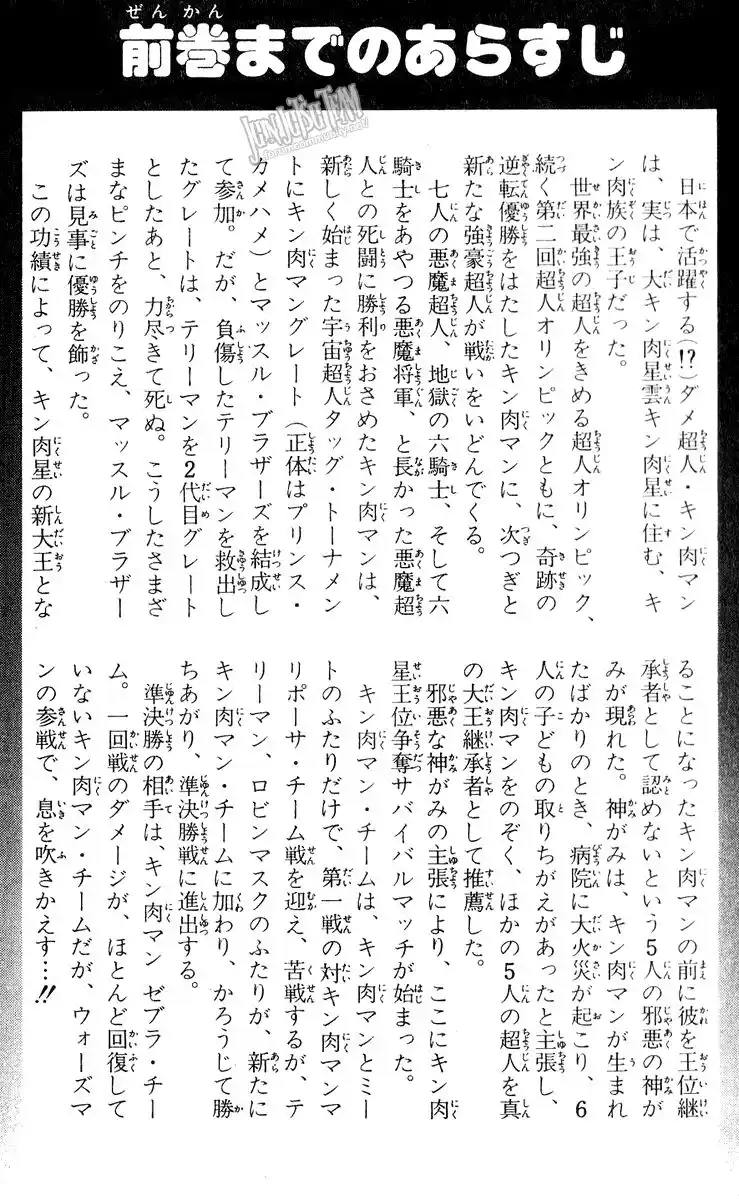 前巻までのあらすじ
日本で活躍する(!?)ダメ超人・キン肉マン
は、実は、大キン肉星雲キン肉星に住む、キ
ン肉族の王子だった。
世界最強の超人をきめる超人オリンピック、
続く第二回超人オリンピックともに、奇跡の
逆転優勝をはたしたキン肉マンに、次つぎと
新たな強豪超人が戦いをいどんでくる。
七人の悪魔超人、地獄の六騎士、そして六
騎士をあやつる悪魔将軍、と長かった悪魔超
人との死闘に勝利をおさめたキン肉マンは、
新しく始まった宇宙超人タッグ・トーナメン
トにキン肉マングレート(正体はプリンス・
カメハメ)とマッスル・ブラザーズを結成し
て参加。だが、負傷したテリーマンを救出し
たグレートは、テリーマンを2代目グレート
としたあと、力尽きて死ぬ。こうしたさまざ
まなピンチをのりこえ、マッスル・ブラザー
ズは見事に優勝を飾った。
この功績によって、キン肉星の新大王とな
ることになったキン肉マンの前に彼を王位継
承者として認めないという5人の邪悪の神が
みが現れた。神がみは、キン肉マンが生まれ
たばかりのとき、病院に大火災が起こり、6
人の子どもの取りちがえがあったと主張し、
キン肉マンをのぞく、ほかの5人の超人を真
の大王継承者として推薦した。
邪悪な神がみの主張により、ここにキン肉
星王位争奪サバイバルマッチが始まった。
キン肉マン・チームは、キン肉マンとミー
トのふたりだけで、第一戦の対キン肉マンマ
リポーサ・チーム戦を迎え、苦戦するが、テ
リーマン、ロビンマスクのふたりが、新たに
キン肉マン・チームに加わり、かろうじて勝
ちあがり、準決勝戦に進出する。
準決勝の相手は、キン肉マン ゼブラ・チー
ム。一回戦のダメージが、ほとんど回復して
いないキン肉マン・チームだが、ウォーズマ
ンの参戦で、息を吹きかえす…!!